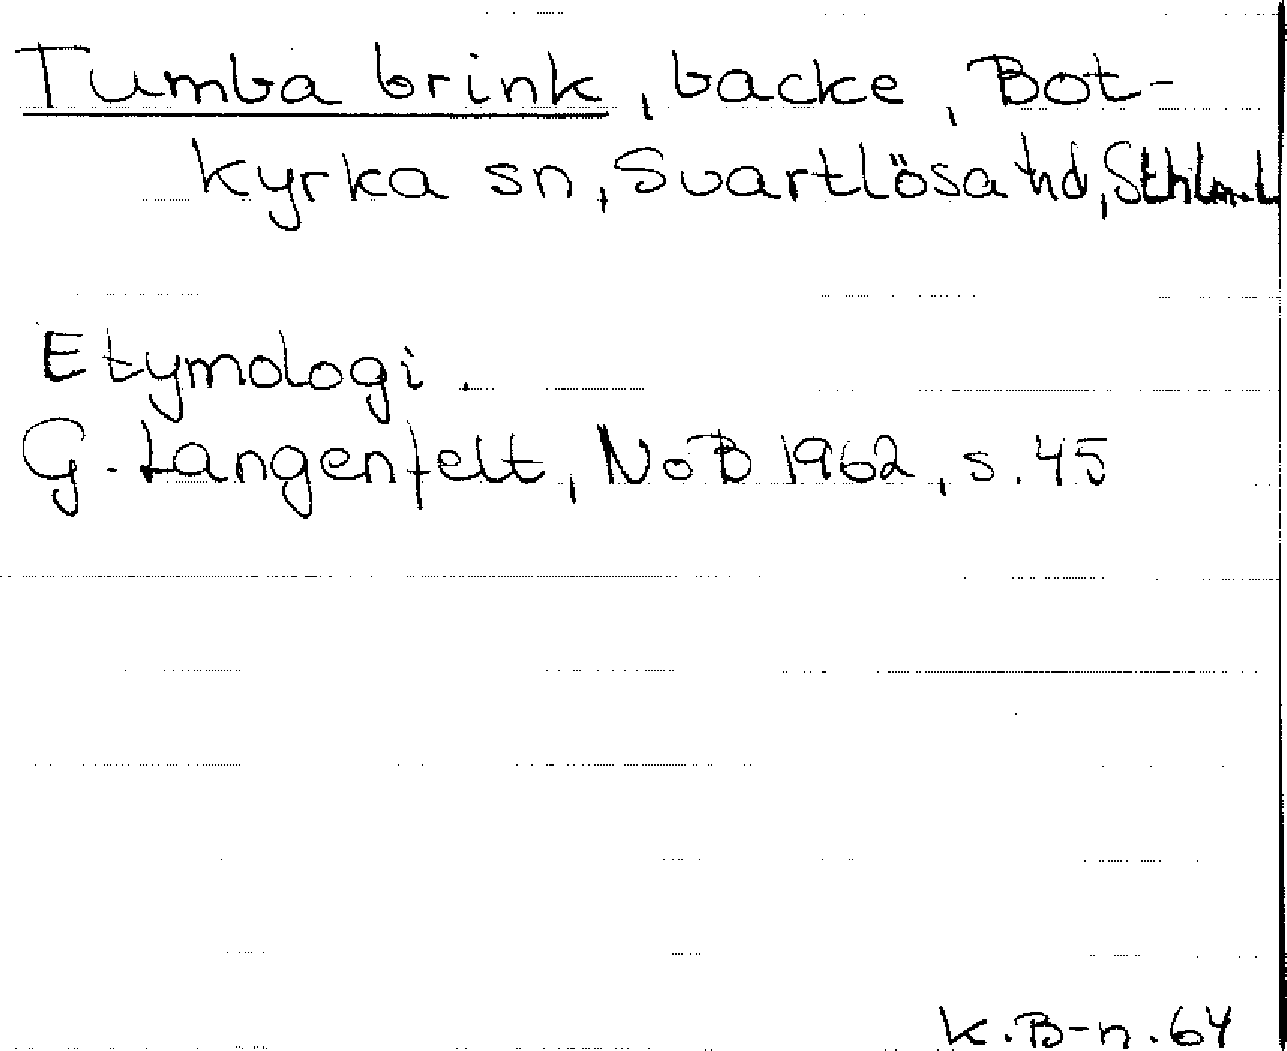 Tumba brink, backe, Bot-
kyrka sn, Svartlösa hd, Sthlm.l
Etymologi.
G. Langenfelt, NoB 1962, s. 45
K.B-n.64